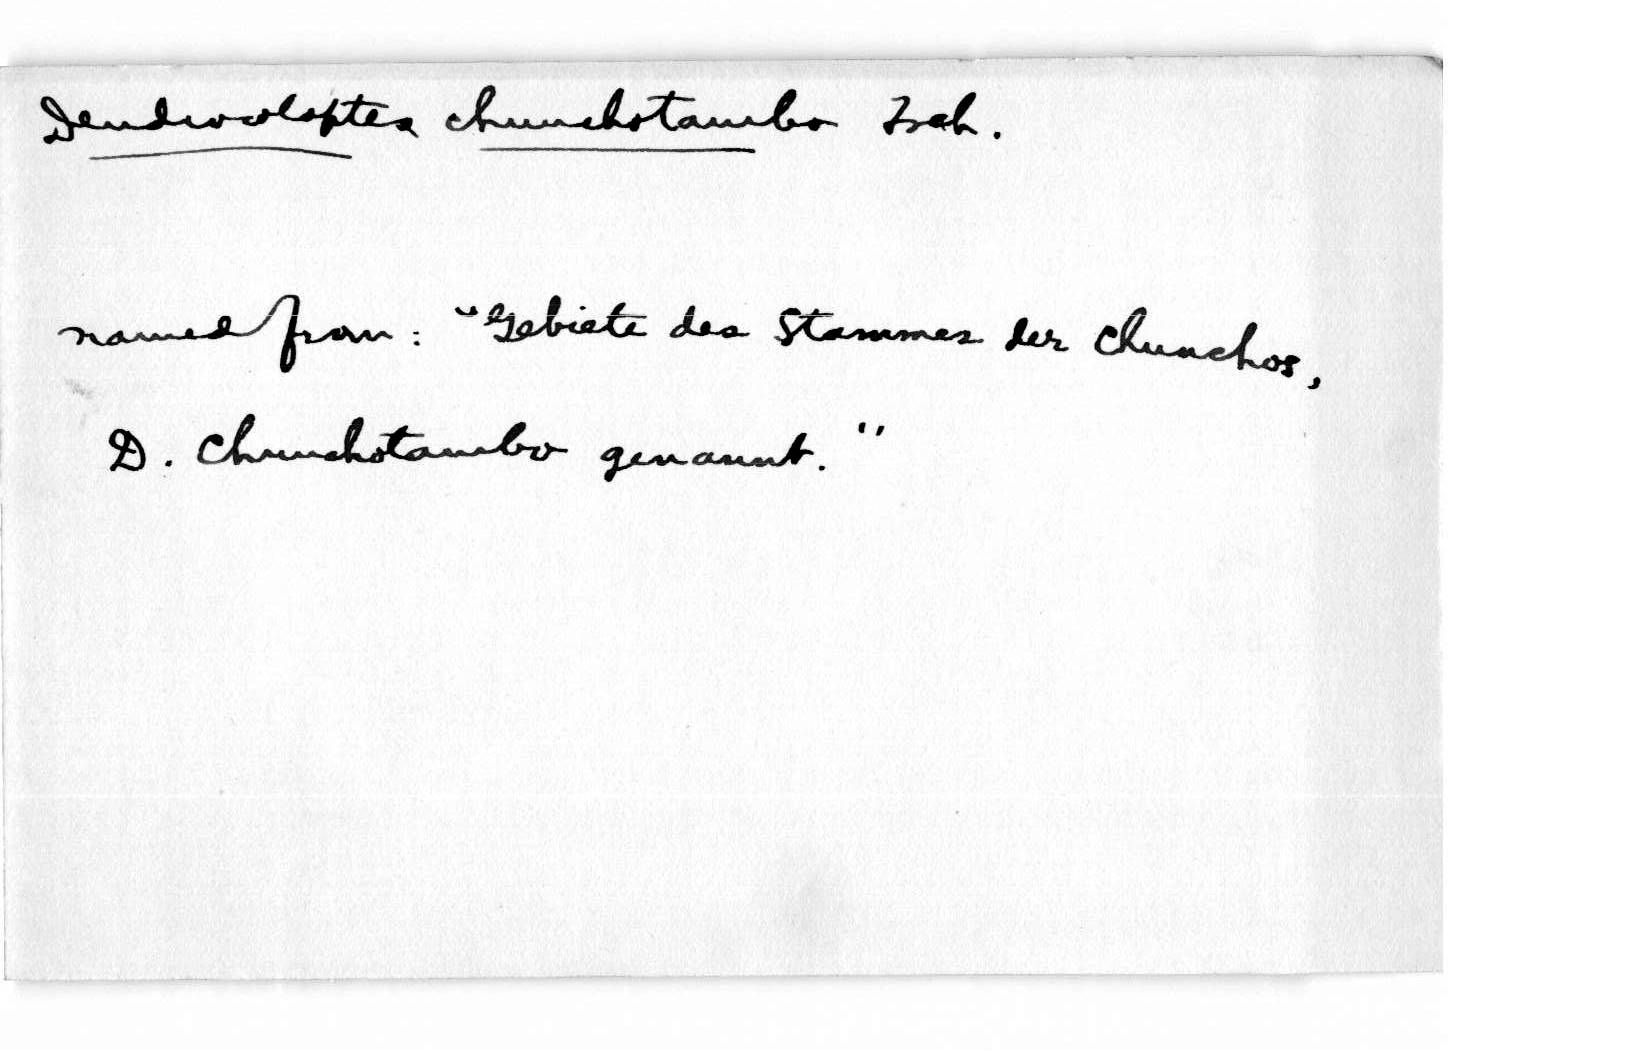 Dendrocolaptes chunchotambo Tsch.
named from: "Gebiete des Stammes der Chunchos,
D. Chunchotambo genannt."